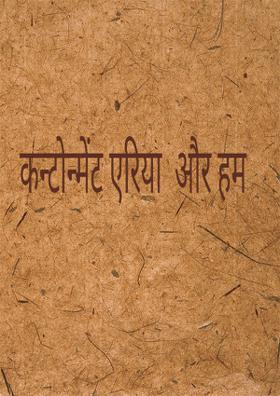 कन्टोन्मेंट एरिया और हम